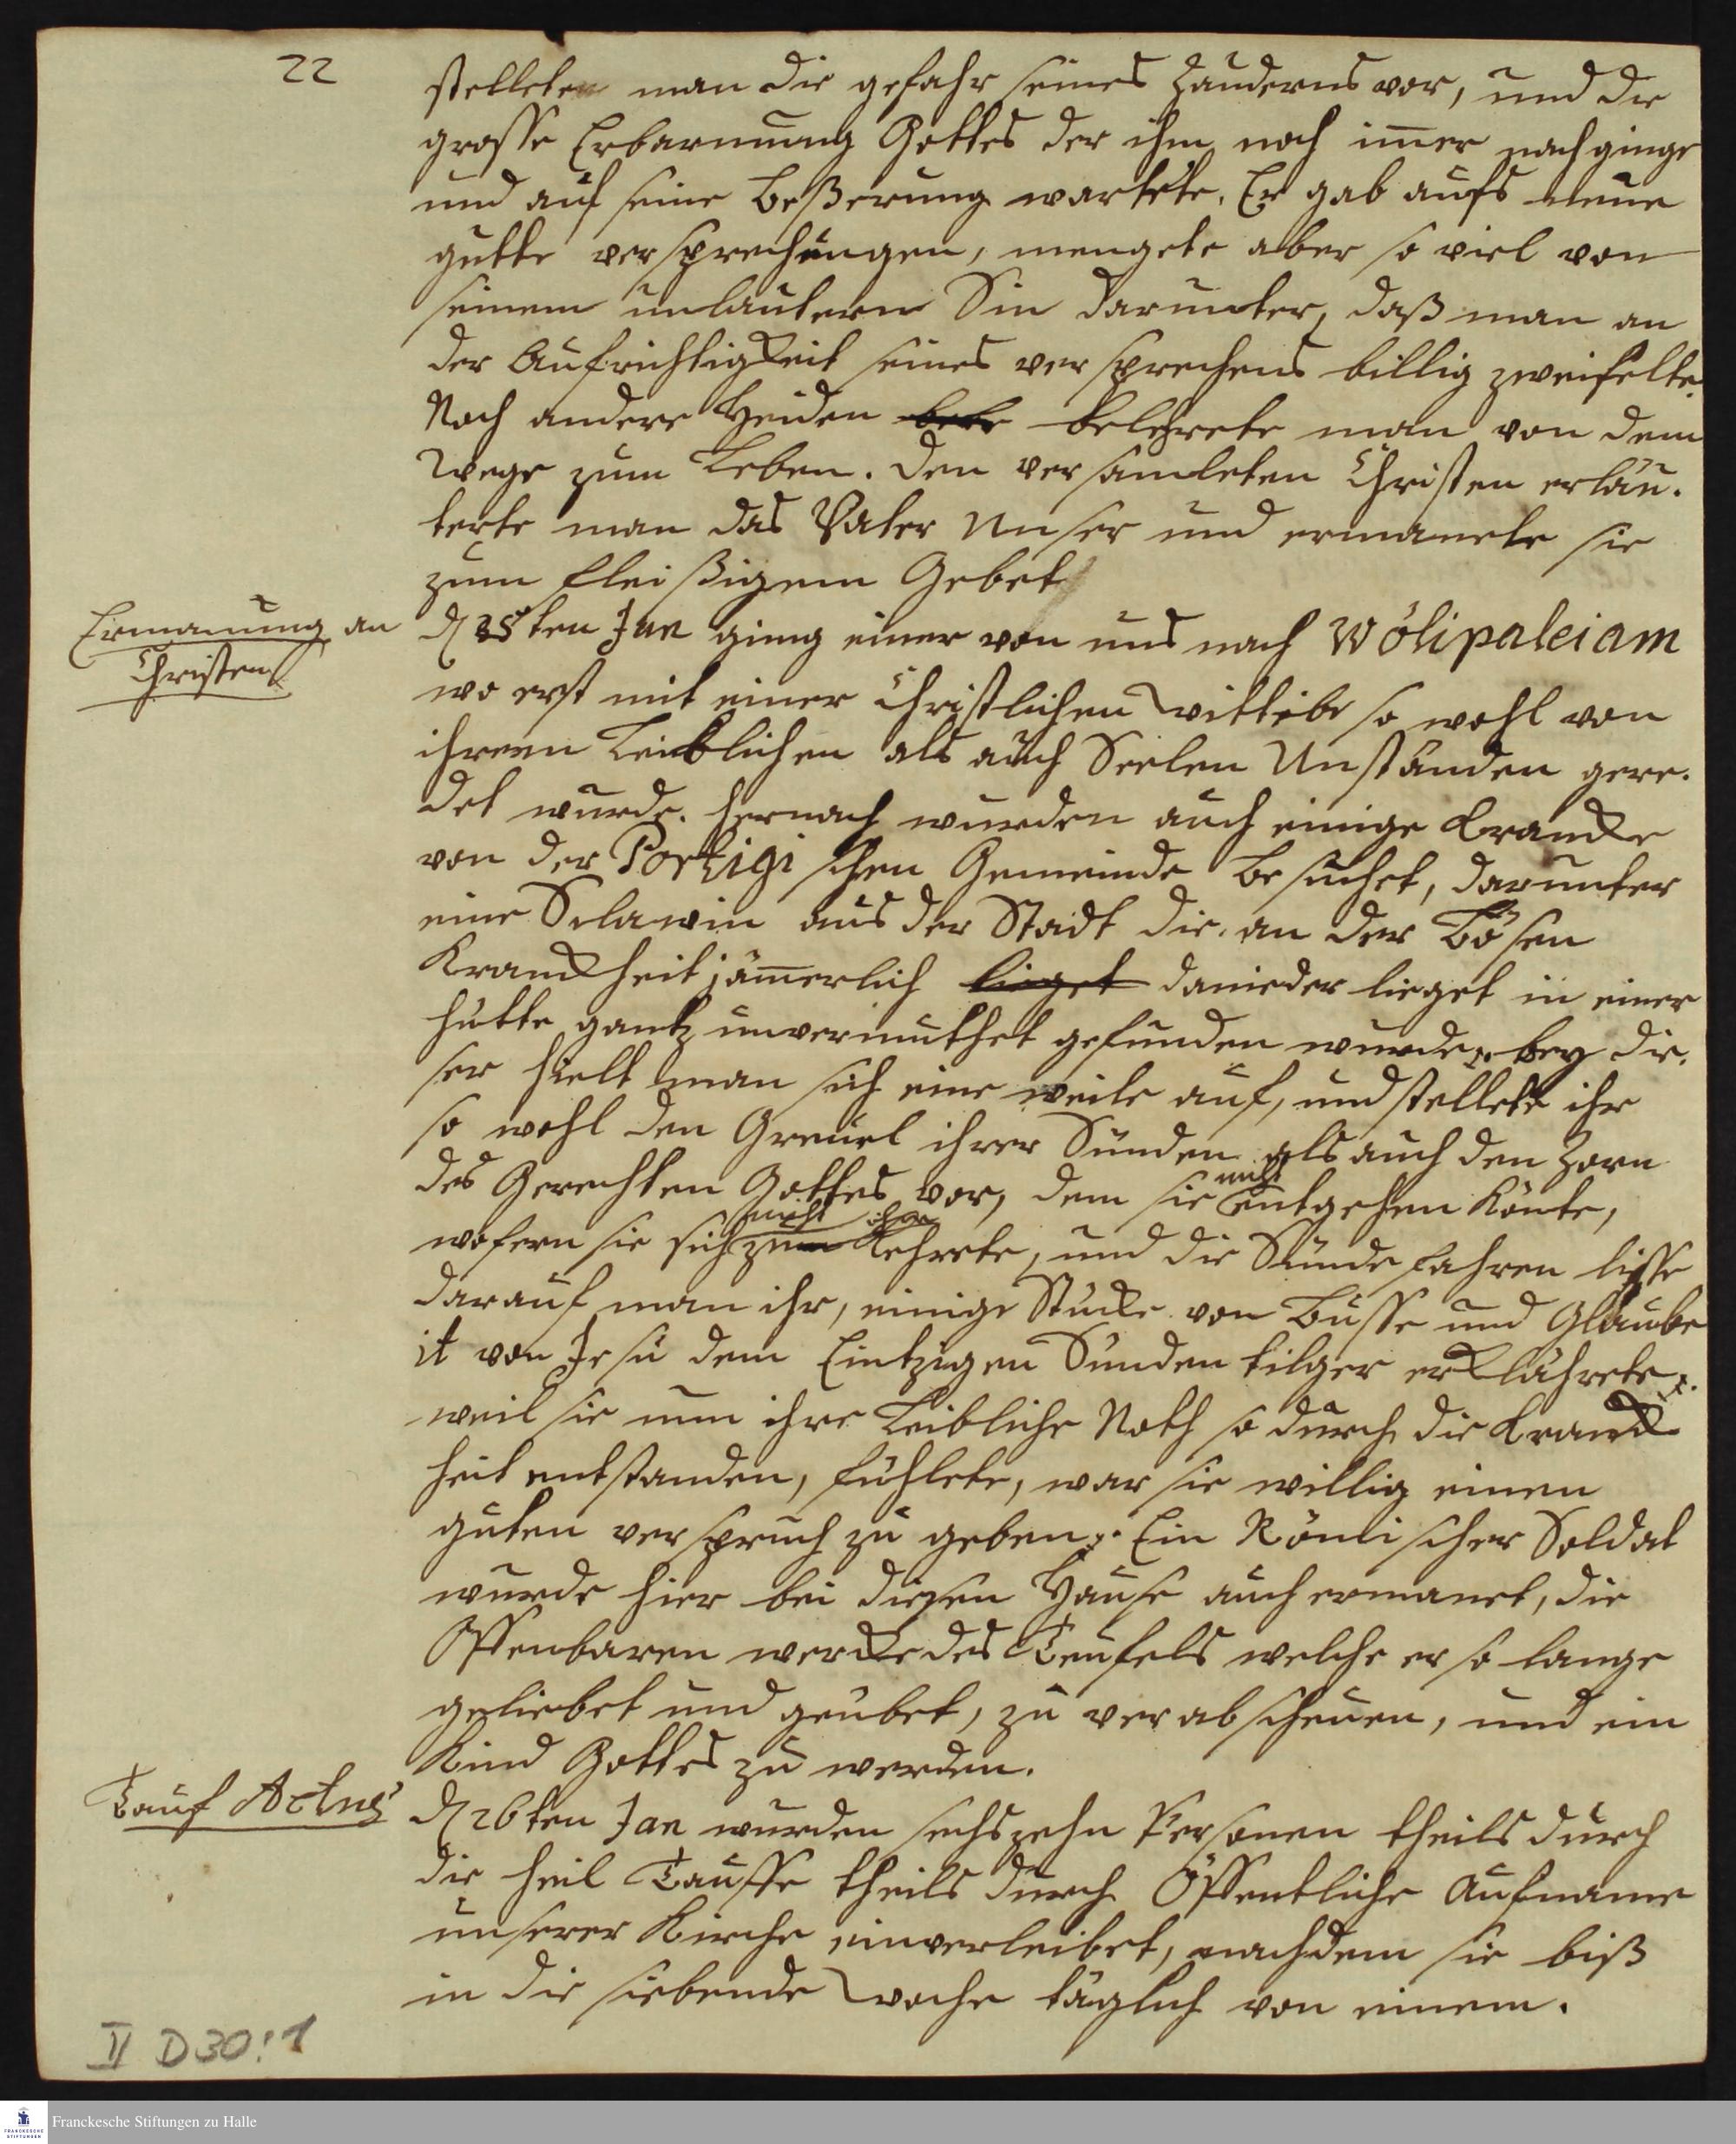 22
stelleten man die gefahr seines Zauderns vor, und die
grosse Erbarmung Gottes der ihm noch im̅er nachginge
und auf seine Beßerung wartete. Er gab aufs neue
gutte versprechungen, mengete aber so viel von
seinem unlautern Sin darunter, daß man an
der Aufrichtigkeit seines versprechens billig zweifelte.
Noch andere Heiden belehrete man von dem
Wege zum Leben. Den versamleten Christen erläu-
terte man das Vater Unser und ermanete sie
zum fleißigem Gebet
Ermanung an
Christen
d 25ten Jan ging einer von uns nach Wölipaleiam
wo erst mit einer Christlichen Wittibe so wohl von
ihren Leiblichen als auch Seelen Umständen gere-
det wurde. hernach wurden auch einige Krancke
von der Portugi schen Gemeinde besuchet, darunter
eine Sclawin aus der Stadt die an der Bösen
Kranckheit jäm̅erlich lieget danieder lieget in einer
hütte gantz unvermuthet gefunden wurde. bey die-
ser hielt man sich eine weile auf, und stellete ihr
so wohl den Greuel ihrer Sünden als auch den Zorn
des Gerechten Gottes vor, dem sie nicht entgehen könte,
wofern sie sich nicht zu ihm kehrete, und die Sünde fahren lisse
darauf man ihr, einige Stücke von Busse und Glaube
it von Jesu dem Eintzigen Sünden tilger erklährete.
weil sie nun ihre Leibliche Noth so durch die Kranck
heit entstanden, fühlete, war sie willig einen
guten verspruch zu geben. Ein Römischer Soldat
wurde hier bei diesen Hause auch ermanet, die
Offenbaren wercke des Teufels welche er so lange
geliebet und geübet, zu verabscheuen, und ein
Kind Gottes zu werden.
Tauf Actus
d 26ten Jan wurden sechszehn Personen theils durch
die heil Tauffe theils durch Öffentliche Aufname
unserer Kirche einverleibet, nachdem sie biß
in die siebende Woche täglich von einem.
II D30:1
Franckesche Stiftungen zu Halle
FRANCKESCHE
STIFTUNGEN